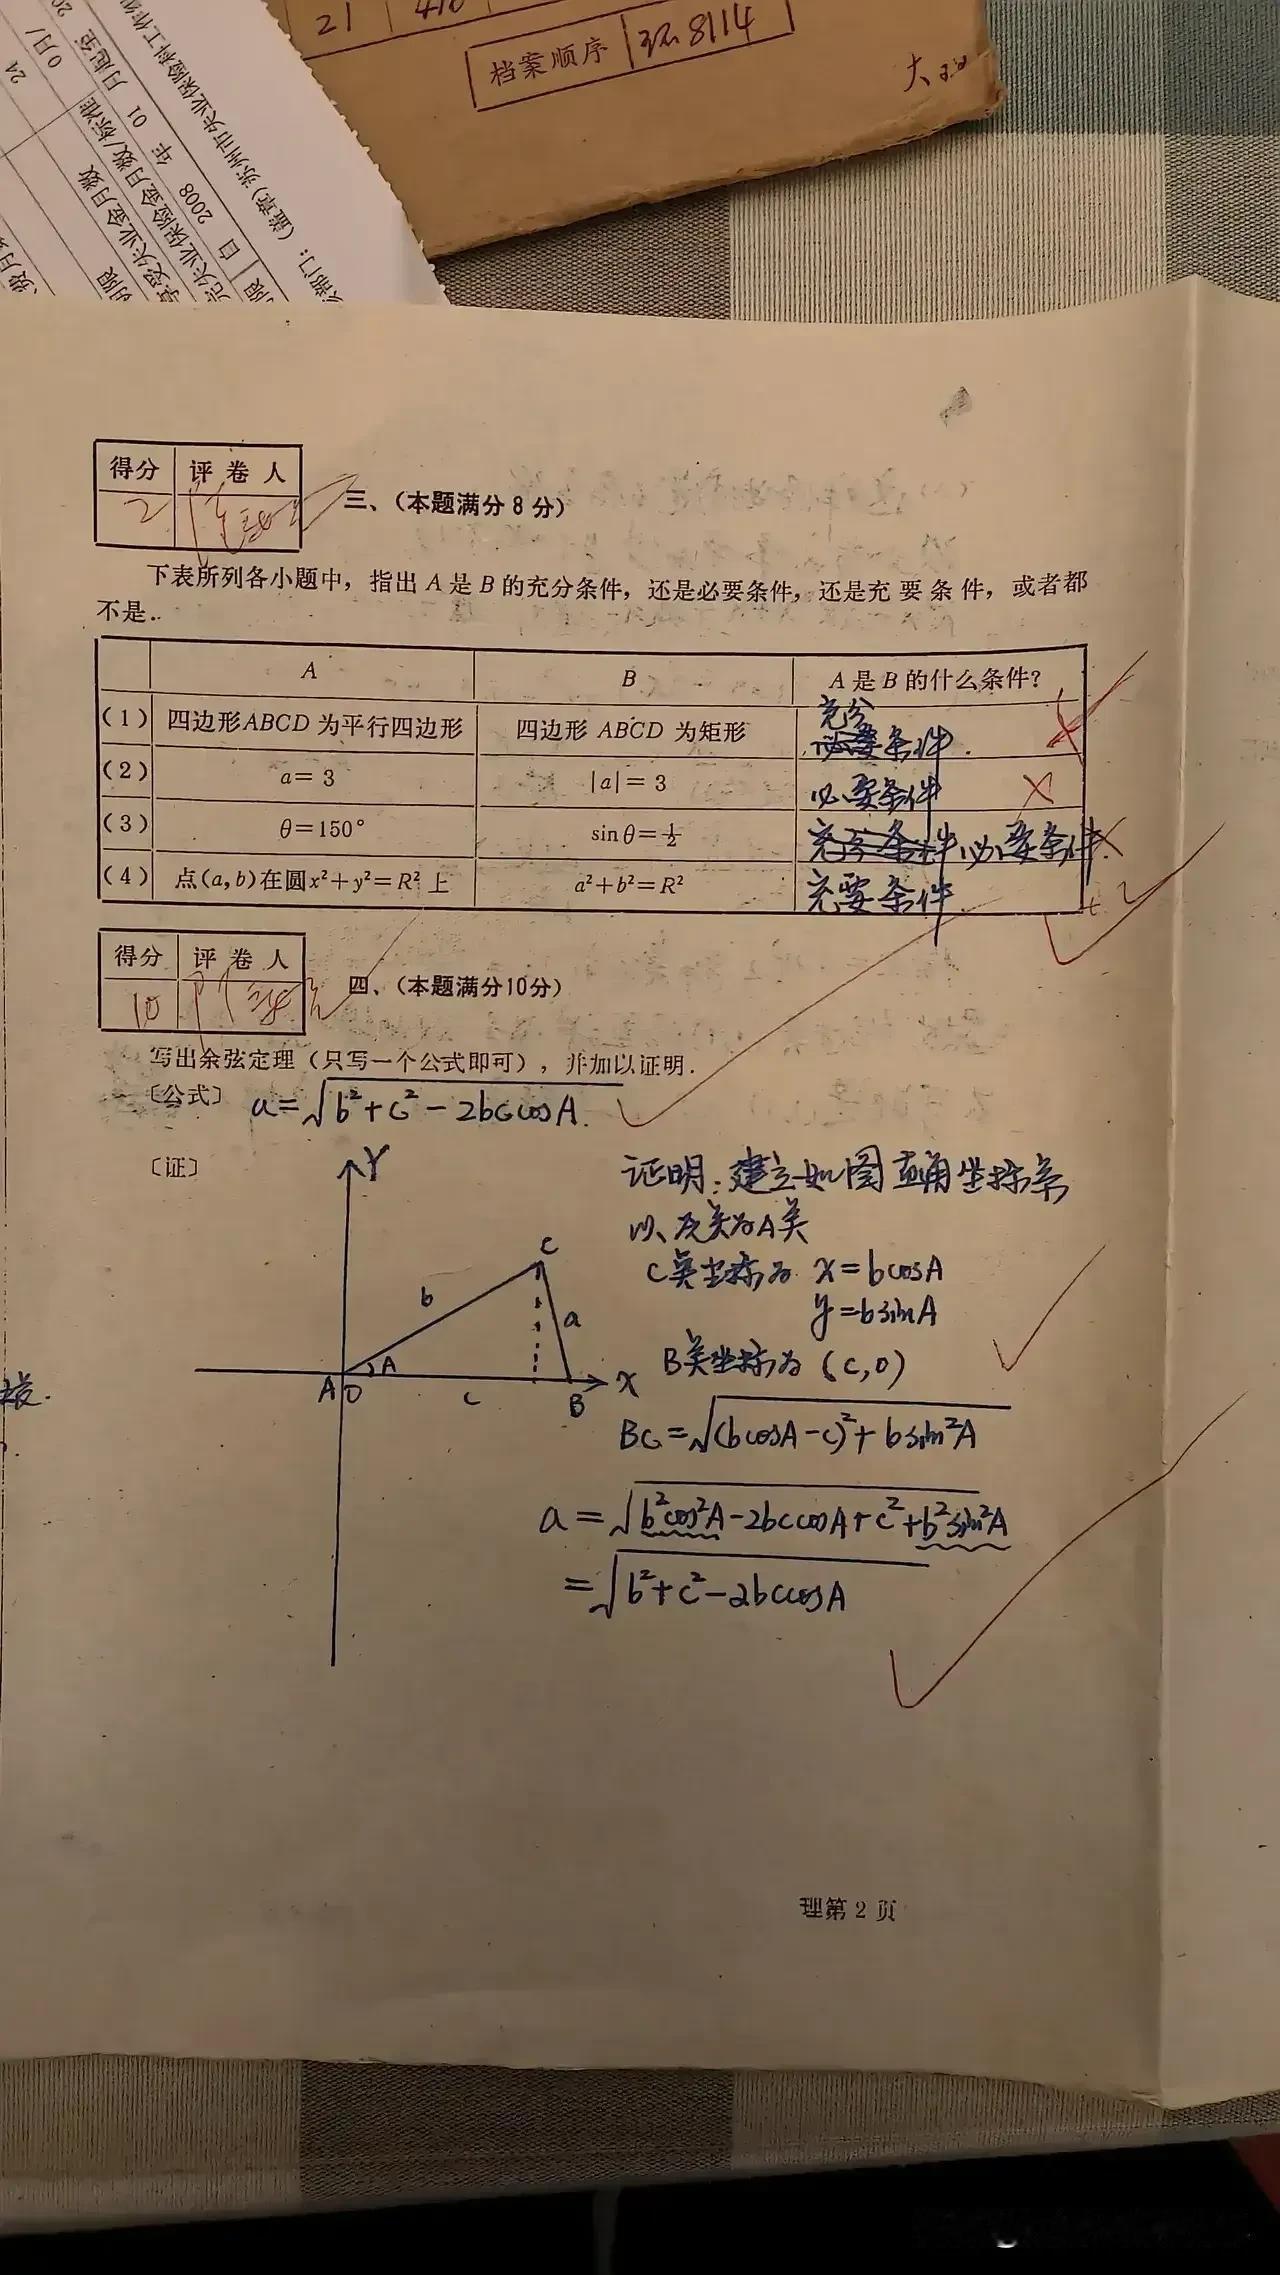 21 410
档案顺序 环8114
大
苏州市失业保险科工作
部门：（盖章）
自 2008 年 01 月起至
失业保险金月数/标准
享受失业金月数
24
得分 评卷人
2
三、（本题满分8分）
下表所列各小题中，指出A是B的充分条件，还是必要条件，还是充要条件，或者都
不是．
A B A是B的什么条件?
充分
(1) 四边形ABCD为平行四边形 四边形 ABCD 为矩形 必要条件．
(2) a=3 |a|=3 必要条件
(3) θ=150° sinθ=½ 充分条件 必要条件．
(4) 点(a,b)在圆x²+y²=R²上 a²+b²=R² 充要条件
+2
得分 评卷人
10
四、（本题满分10分）
写出余弦定理（只写一个公式即可），并加以证明．
〔公式〕 a=√b²+c²-2bccosA.
〔证〕
Y
C
b
a
A
A O
c
B
X
证明：建立如图直角坐标系
以原点为A点
C点坐标为 x=bcosA
y=bsinA
B点坐标为 (c,0)
BC=√(bcosA-c)²+bsin²A
a=√b²cos²A-2bccosA+c²+b²sin²A
=√b²+c²-2bccosA
理第2页